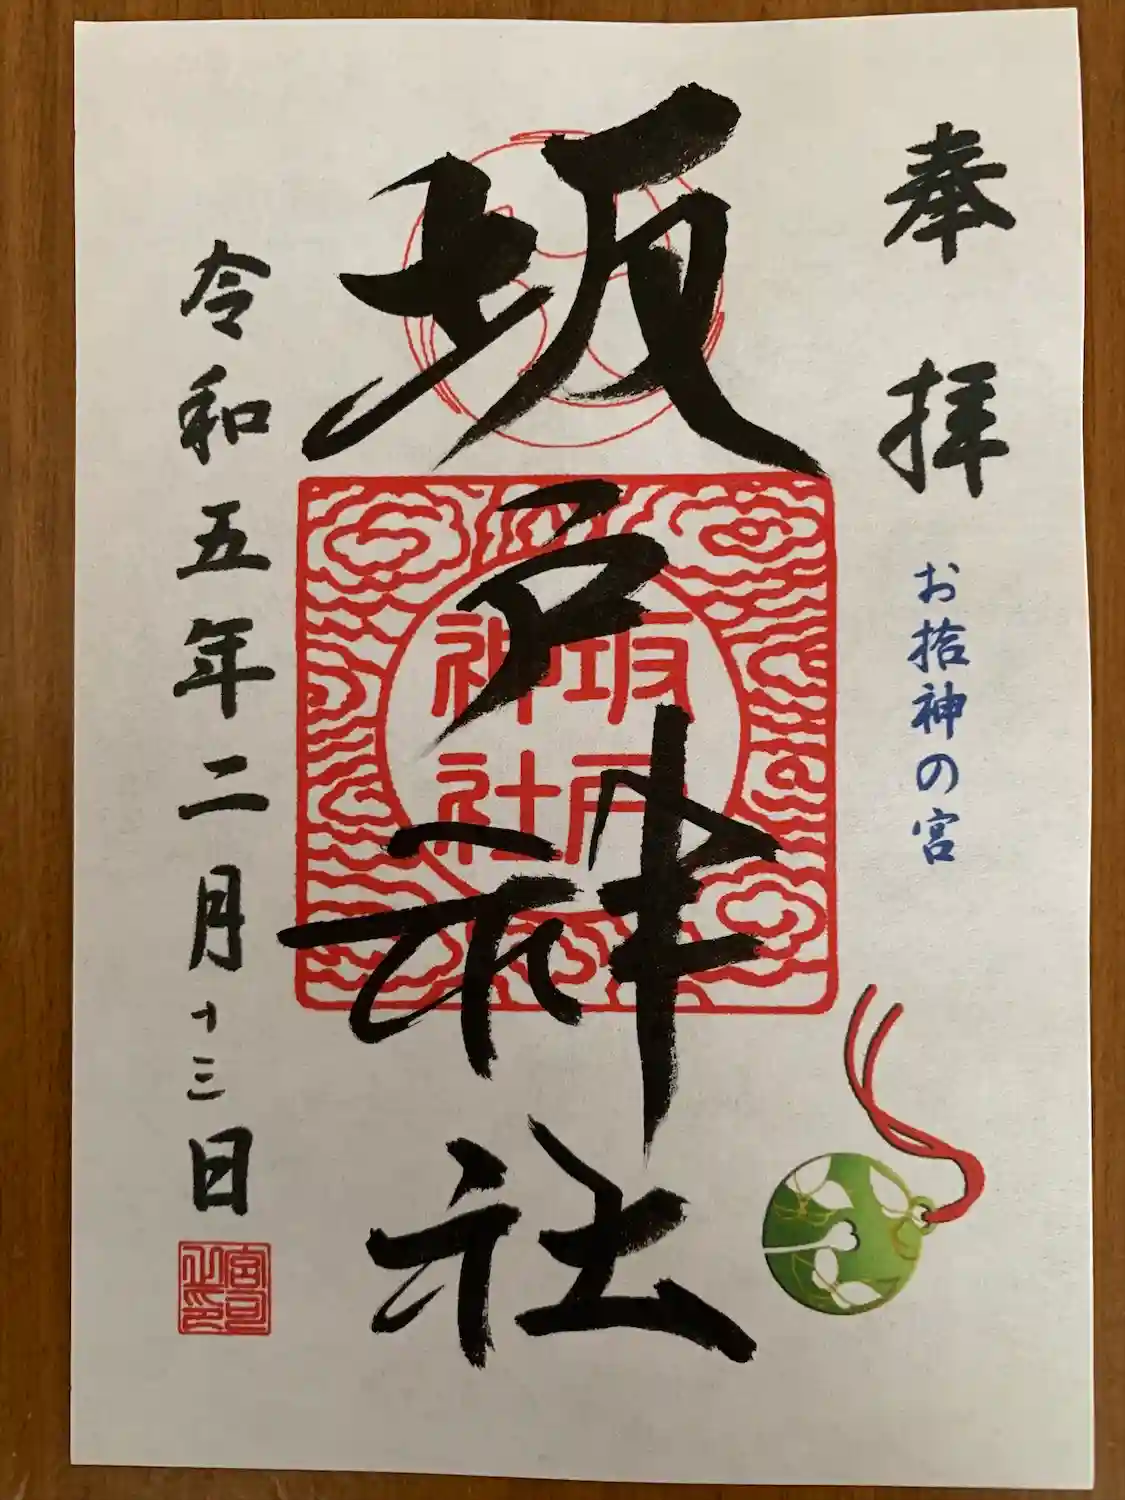 奉拝
お拾神の宮
坂戸神社
坂戸
神社
令和五年二月十三日
宮司之印